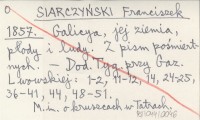 0 SIARCZYŃSKI Franciszek
1857. Galicya, jej ziemia,
płody i ludy. Z pism pośmiert-
nych. — Dod. Tyg. przy Gaz.
Lwowskiej: 1-2, 11-12, 14, 24-25,
36-41, 44, 48-51.
M.i. o kruszcach w Tatrach.